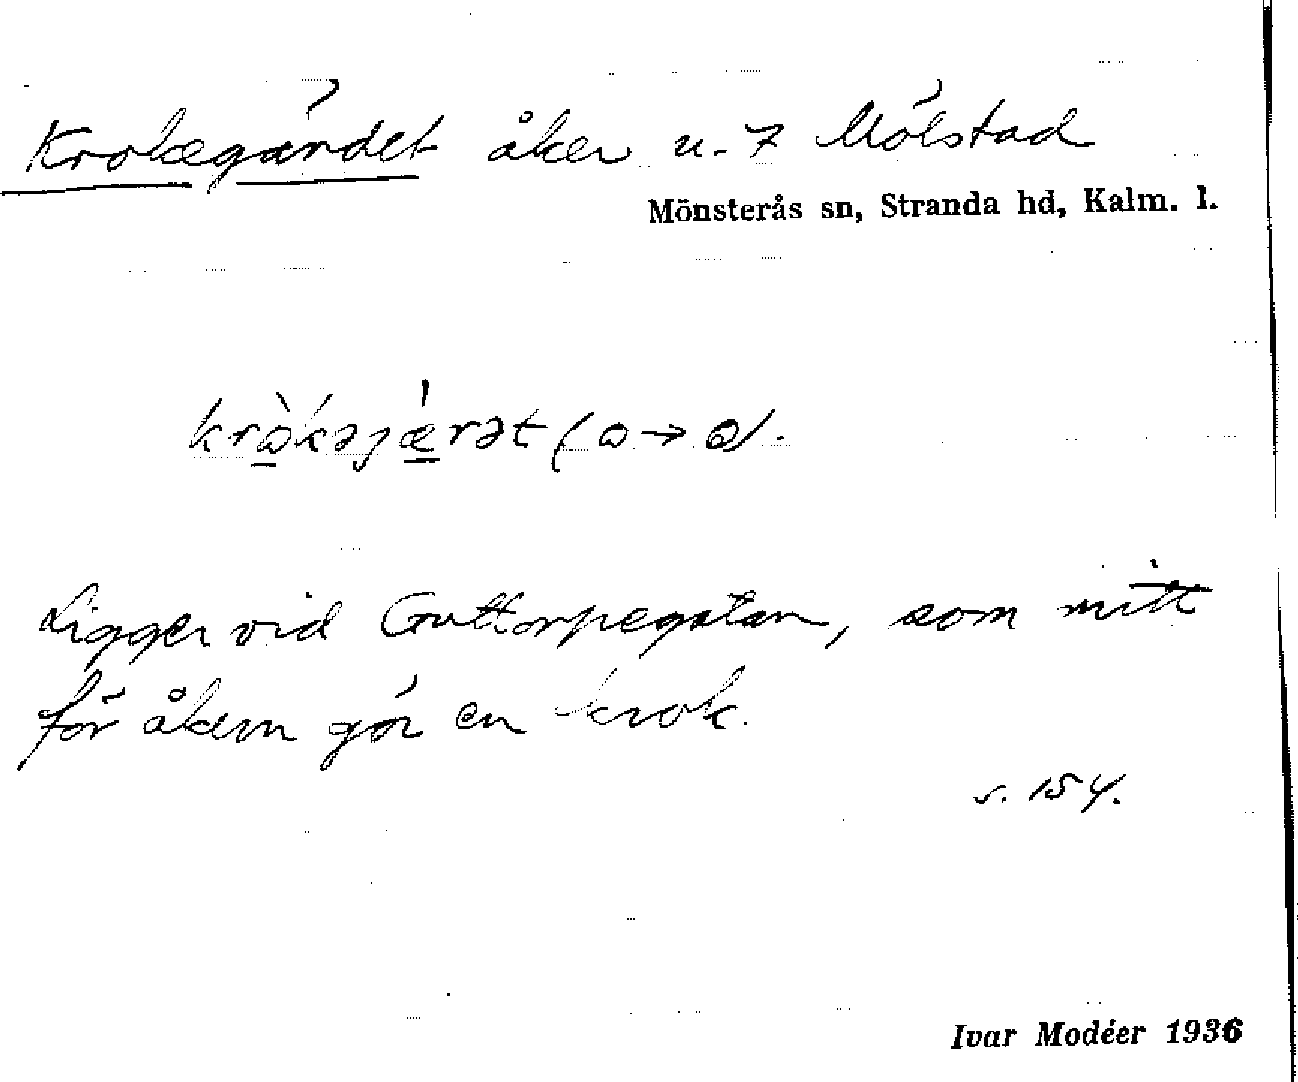 Krokegärdet åker u. 7 Mölstad
Mönsterås sn, Stranda hd, Kalm. l.
Ligger vid Guttorpegatan, som mitt
för åkern gör en krok.
s. 154.
Ivar Modéer 1936